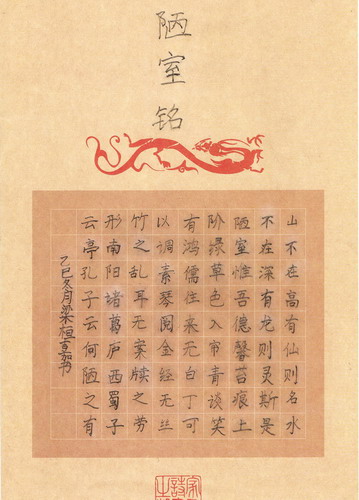 陋室铭
山不在高有仙则名水
不在深有龙则灵斯是
陋室惟吾德馨苔痕上
阶绿草色入帘青谈笑
有鸿儒往来无白丁可
以调素琴阅金经无丝
竹之乱耳无案牍之劳
形南阳诸葛庐西蜀子
云亭孔子云何陋之有
乙巳冬月梁桓嘉书